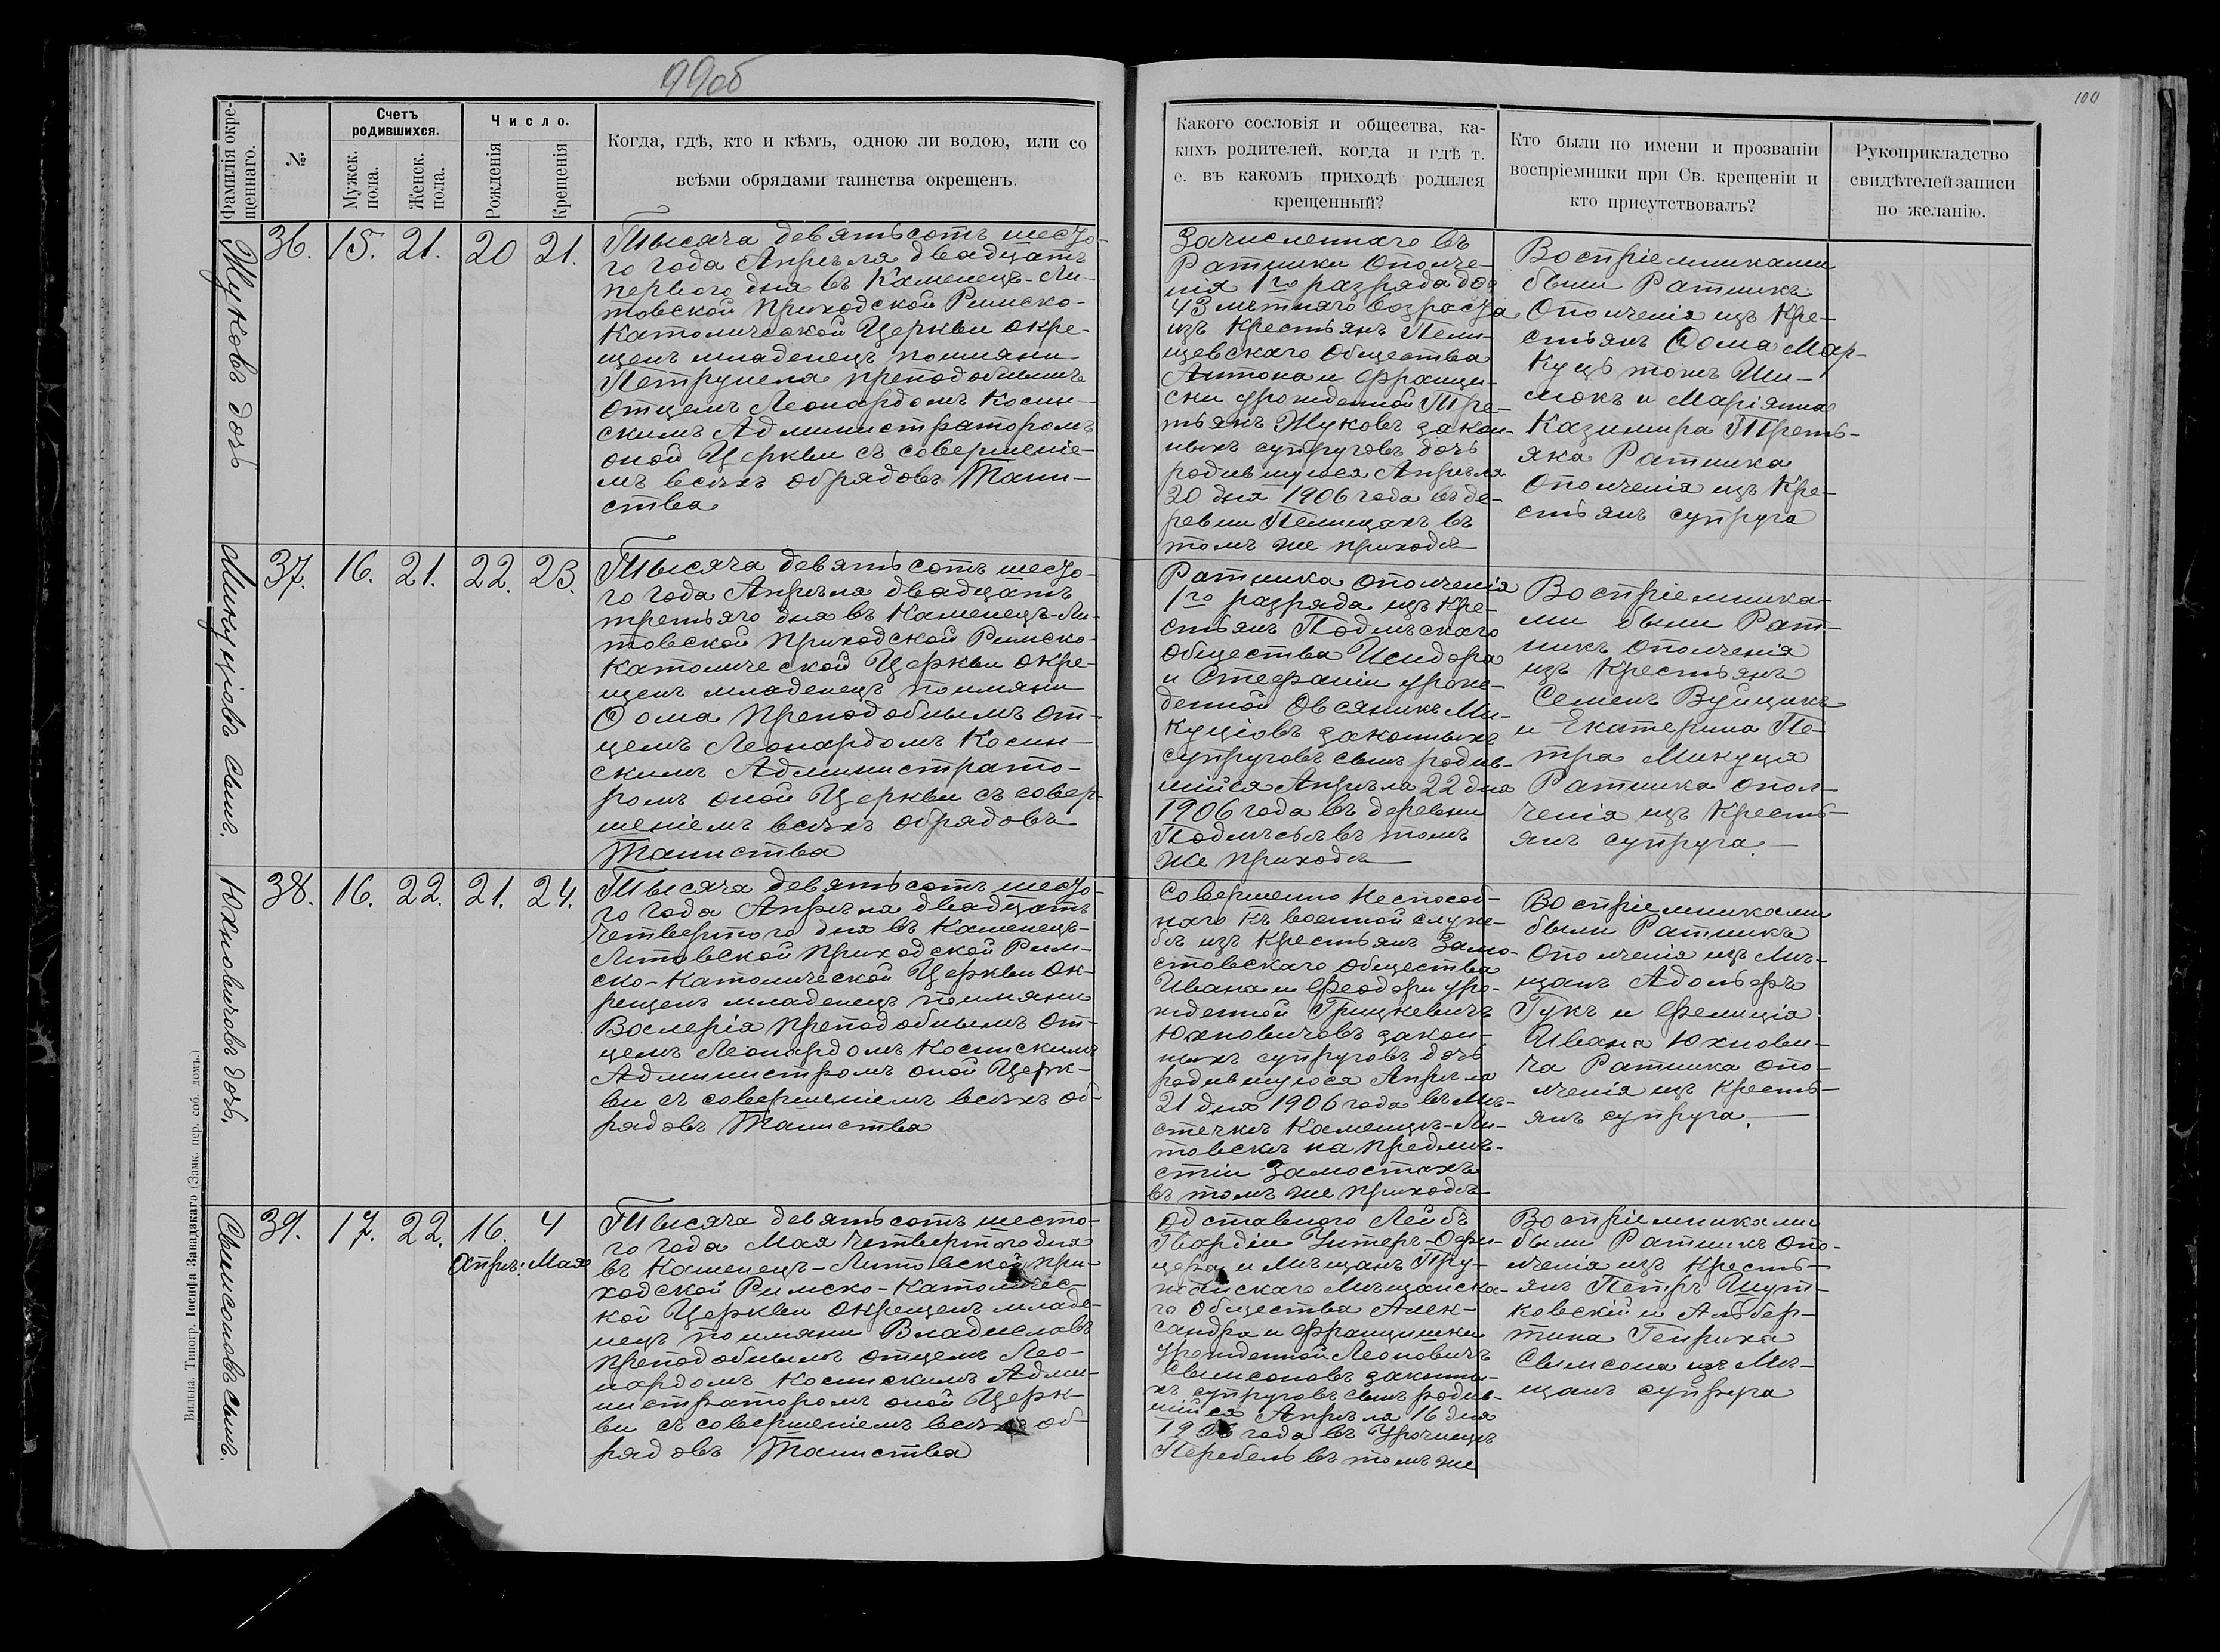 99об
100
Фамилія окре-
щеннаго.
№
Счетъ
родившихся.
Мужск.
пола.
Женск.
пола.
Число.
Рожденія
Крещенія
Когда, гдѣ, кто и кѣмъ, одною ли водою, или со
всѣми обрядами таинства окрещенъ.
Какого сословія и общества, ка-
кихъ родителей, когда и гдѣ т.
е. въ какомъ приходѣ родился
крещенный?
Кто были по имени и прозваніи
воспріемники при Св. крещеніи и
кто присутствовалъ?
Рукоприкладство
свидѣтелей записи
по желанію.
Жуковъ дочь
36. 15. 21. 20 21.
Тысяча девятьсотъ шесто-
го года Апрѣля двадцать
перваго дня въ Каменецъ-Ли-
товской Приходской Римско-
Католической Церкви окре-
щенъ младенецъ поимяни
Петрунеля преподобнымъ
Отцемъ Леонардомъ Косин-
скимъ Администраторомъ
оной Церкви съ совершеніе-
мъ всѣхъ обрядовъ Таин-
ства
Зачисленнаго въ
Ратники Ополче-
нія 1го разряда до
43 лѣтняго возраста
изъ Крестьянъ Пели-
щевскаго Общества
Антона и Франци-
ски урожденной Тре-
тьякъ Жуковъ закон-
ныхъ супруговъ дочь
родившуюся Апрѣля
20 дня 1906 года въ де-
ревни Пелищахъ въ
томъ же приходѣ
Воспріемниками
были Ратникъ
Ополченія изъ Кре-
стьянъ Ѳома Мар-
Куць
и Маріянна
Казимира Треть-
яка Ратника
Ополченія изъ Кре-
стьянъ супруга
Микуціовъ сынъ.
37. 16. 21. 22. 23.
Тысяча девятьсотъ шесто-
го года Апрѣля двадцать
третьяго дня въ Каменецъ-Ли-
товской Приходской Римско-
Католической Церкви окре-
щенъ младенецъ поимяни
Ѳома Преподобнымъ От-
цемъ Леонардомъ Косин-
скимъ Администрато-
ромъ оной Церкви съ совер-
шеніемъ всѣхъ обрядовъ
Таинства
Ратника ополченія
1го разряда изъ Кре-
стьянъ Подлѣскаго
Общества Исидора
и Стефаніи урож-
денной Овсяникъ Ми-
куціовъ законныхъ
супруговъ сынъ родив-
шійся Апрѣля 22 дня
1906 года въ деревни
Подлѣсьѣ въ томъ
же приходѣ
Воспріемника-
ми были Рат-
никъ ополченія
изъ Крестьянъ
Семенъ Вуйцикъ
и Екатерина Пе-
тра Микуця
Ратника Опол-
ченія изъ Кресть-
янъ супруга.
Юхновичовъ дочь.
38. 16. 22. 21. 24.
Тысяча девятьсотъ шесто-
го года Апрѣля двадцать
четвертого дня въ Каменецъ-
Литовской Приходской Рим-
ско-Католической Церкви ок-
рещенъ младенецъ поимяни
Валерія преподобнымъ От-
цемъ Леонардомъ Косинскимъ
Администромъ оной Церк-
ви съ совершеніемъ всѣхъ об-
рядовъ Таинства
Совершенно неспособ-
наго къ военной служ-
бѣ изъ Крестьянъ Замо-
стовскаго Общества
Ивана и Феодоры уро-
жденной Грицкевичъ
Юхновичовъ закон-
ныхъ супруговъ дочь
родившуюся Апрѣля
21 дня 1906 года въ Мѣ-
стечкѣ Каменцѣ-Ли-
товскѣ на предмѣ-
стіи Замостахъ
въ томъ же приходѣ
Воспріемниками
были Ратникъ
Ополченія изъ Мѣ-
щанъ Адольфъ
Гукъ и Фелиція
Ивана Юхнови-
ча Ратника опо-
лченія изъ Кресть-
янъ супруга.
Свымсоновъ сынъ.
39. 17. 22. 16. 4
Апрѣ: Мая
Тысяча девятьсотъ шесто-
го года Мая четвертого дня
въ Каменецъ-Литовской при-
ходской Римско-Католичес-
кой Церкви окрещенъ младе-
нецъ поимяни Владиславъ
преподобнымъ отцемъ Лео-
нардомъ Косинскимъ Адми-
нистраторомъ оной Церк-
ви съ совершеніемъ всѣхъ об-
рядовъ Таинства
Одставного Лейбъ
Гвардіи Унтеръ-Офи-
цера и Мѣщанъ Пру-
жанскаго Мѣщанска-
го Общества Алек-
сандра и Францишки
Урожденной Леоновичъ
Свымсоновъ законны-
хъ супруговъ сынъ родив-
шійся Апрѣля 16 дня
1906 года въ Урочищѣ
Перебель въ томъ же
Воспріемниками
были Ратникъ Опо-
лченія изъ Кресть-
янъ Петръ Шут-
ковскій и Альбер-
тина Генриха
Свымсона изъ Мѣ-
щанъ супруга
Вильна. Типогр. Іосифа Завадзкаго (Замк. пер. соб. домъ.)